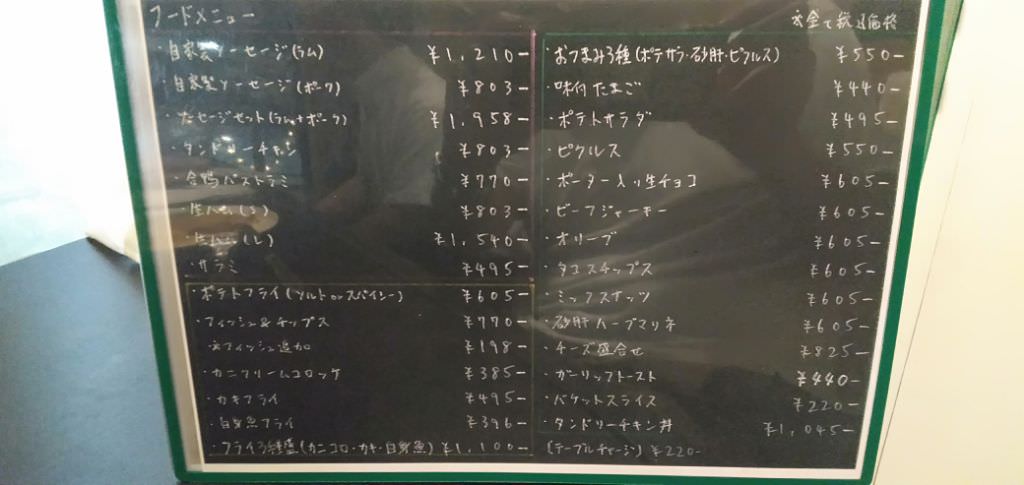 フードメニュー
※全て税込価格
・自家製ソーセージ(ラム) ¥1,210-
・自家製ソーセージ(ポーク) ¥803-
・ソーセージセット(ラム+ポーク) ¥1,958-
・タンドリーチキン ¥803-
・合鴨パストラミ ¥770-
・生ハム(S) ¥803-
・生ハム(L) ¥1,540-
・サラミ ¥495-
・ポテトフライ(ソルトorスパイシー) ¥605-
・フィッシュ&チップス ¥770-
※フィッシュ追加 ¥198-
・カニクリームコロッケ ¥385-
・カキフライ ¥495-
・白身魚フライ ¥396-
・フライ3種盛(カニコロ・カキ・白身魚) ¥1,100-
・おつまみ3種(ポテサラ・砂肝・ピクルス) ¥550-
・味付たまご ¥440-
・ポテトサラダ ¥495-
・ピクルス ¥550-
・ポーター入り生チョコ ¥605-
・ビーフジャーキー ¥605-
・オリーブ ¥605-
・タコスチップス ¥605-
・ミックスナッツ ¥605-
・砂肝ハーブマリネ ¥605-
・チーズ盛合せ ¥825-
・ガーリックトースト ¥440-
・バケットスライス ¥220-
・タンドリーチキン丼 ¥1,045-
(テーブルチャージ) ¥220-